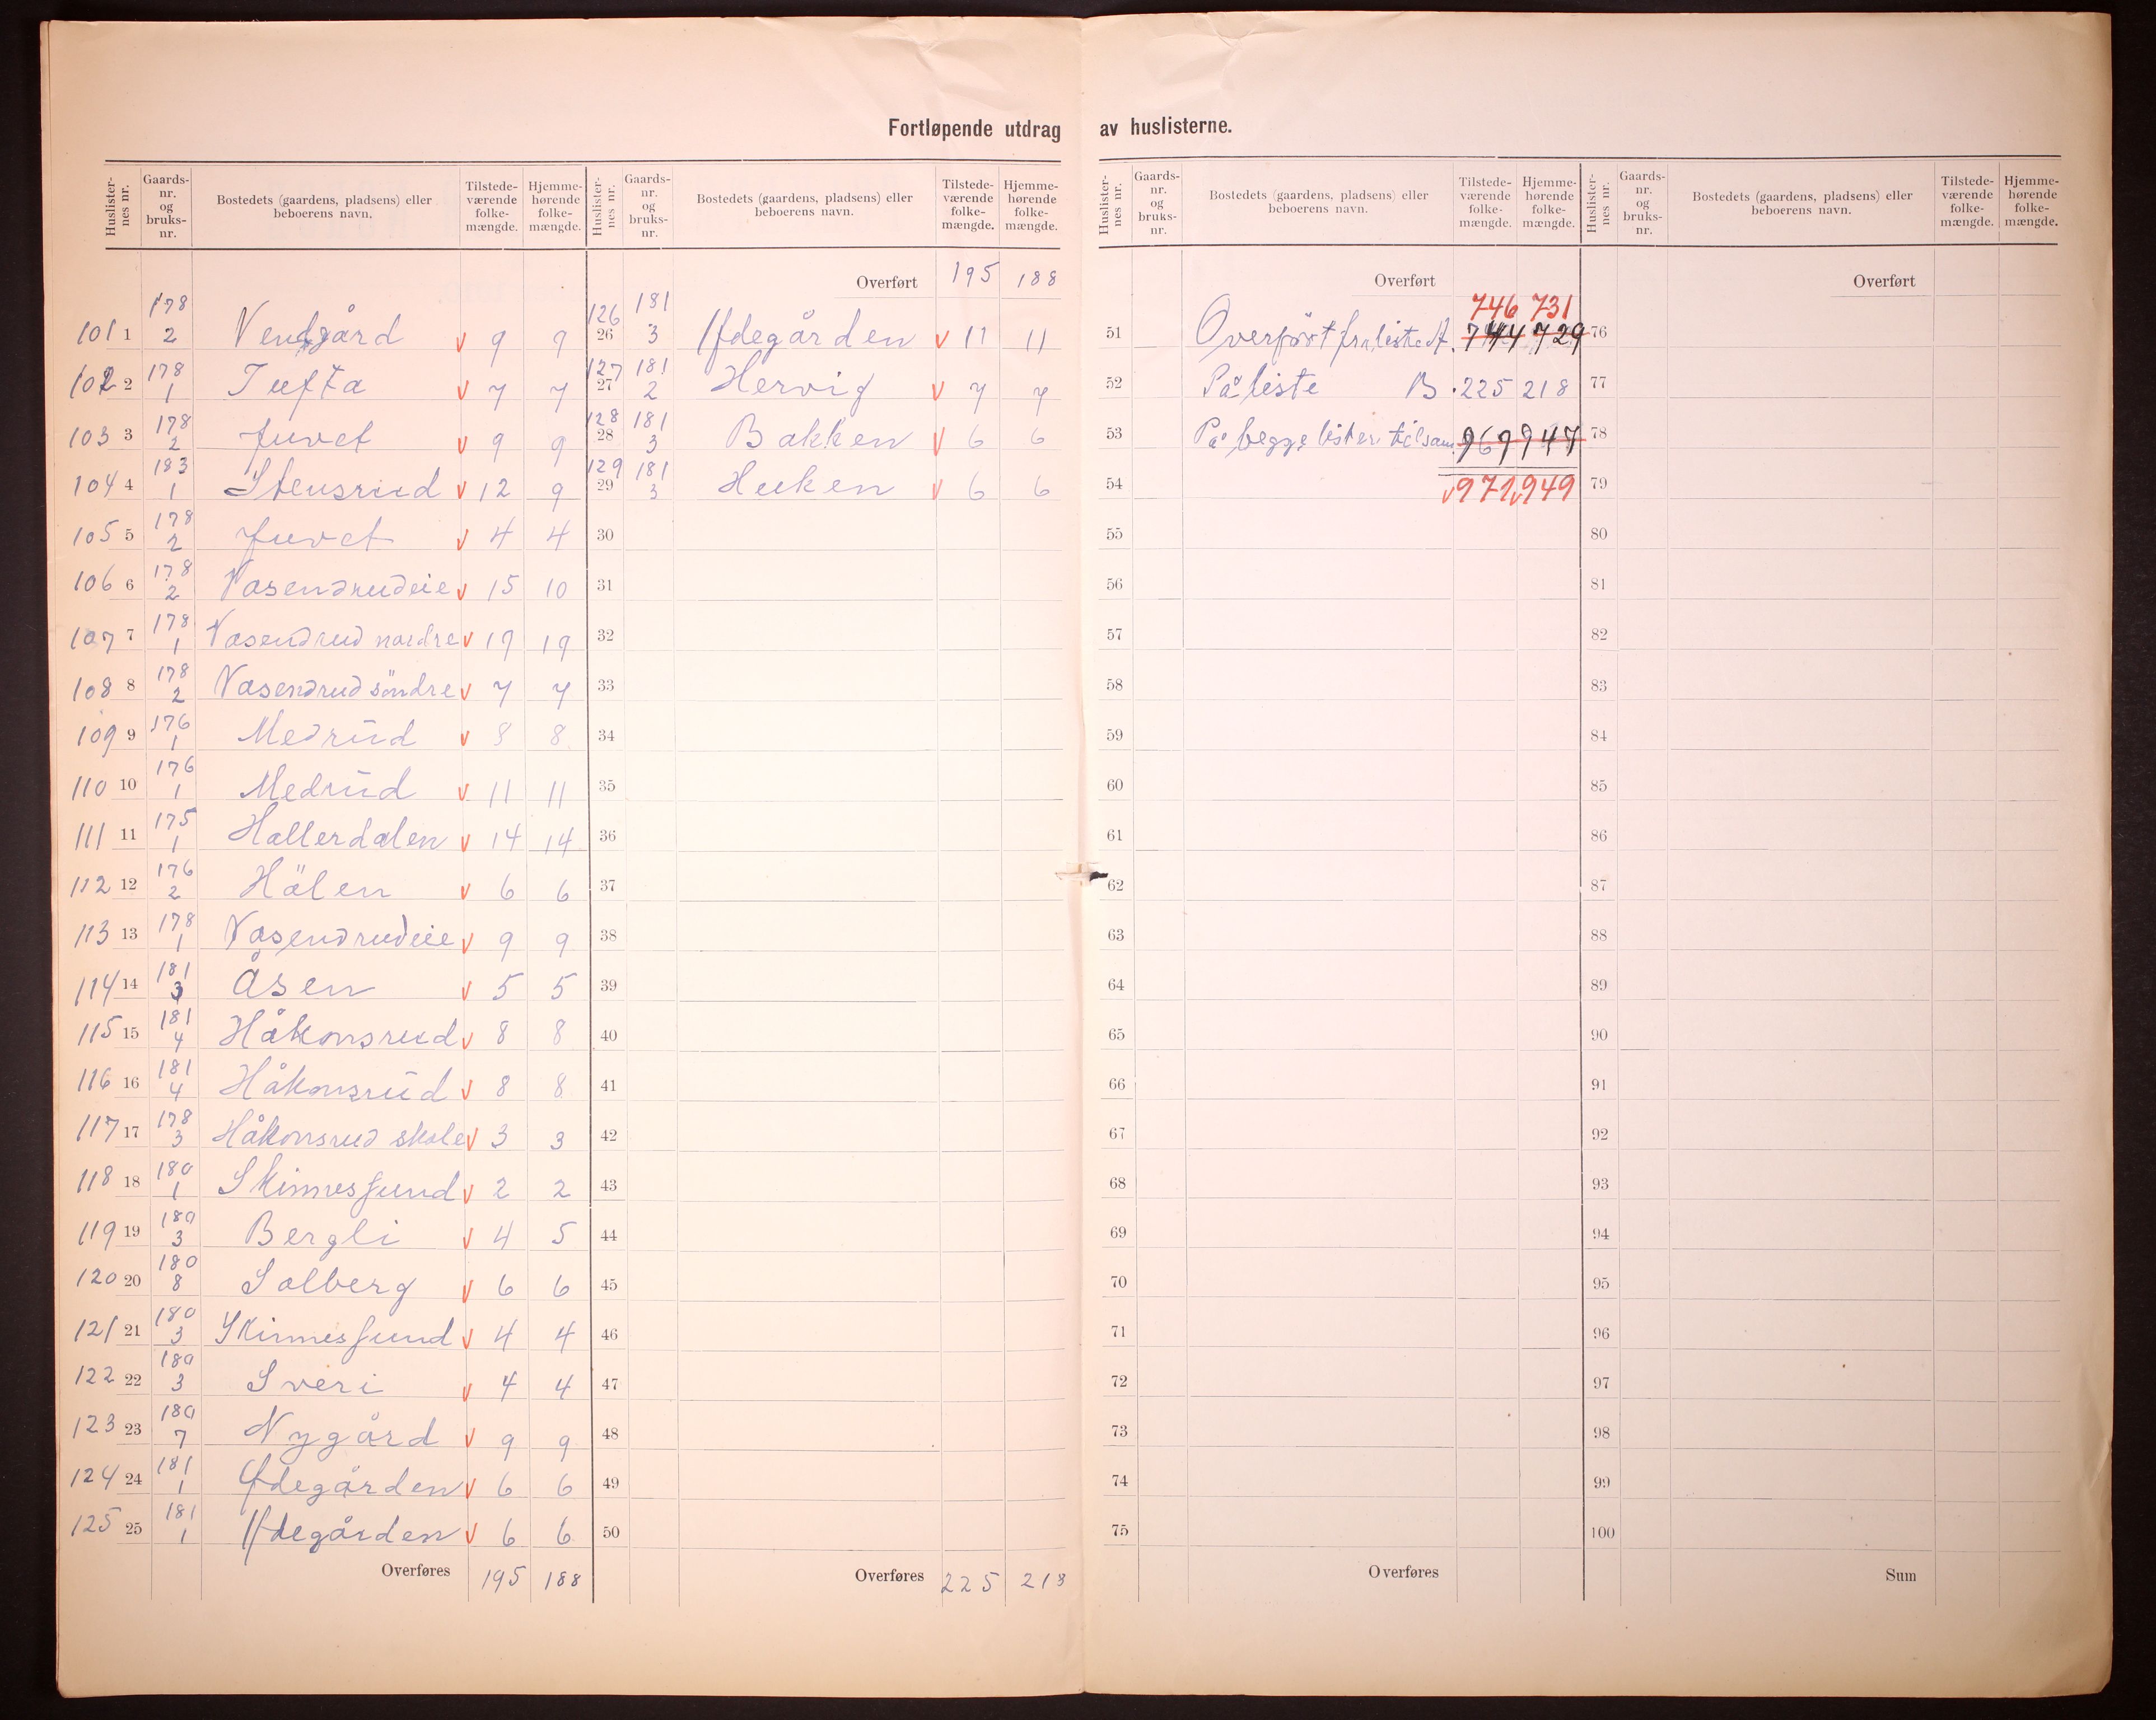 Fortløpende utdrag av huslisterne.
Huslisternes nr. Gaards-nr. og bruks-nr. Bostedets (gaardens, pladsens) eller beboerens navn. Tilstede-værende folke-mængde. Hjemme-hørende folke-mængde.
101 1 178 2 Vendgård v 9 9
102 2 178 1 Tufta v 7 7
103 3 178 2 Juvet v 9 9
104 4 183 1 Stensrud v 12 9
105 5 178 2 Juvet v 4 4
106 6 178 2 Vasendrudeie v 15 10
107 7 178 1 Vasendrud nordre v 19 19
108 8 178 2 Vasendrud söndre v 7 7
109 9 176 1 Medrud v 8 8
110 10 176 1 Medrud v 11 11
111 11 175 1 Hallerdalen v 14 14
112 12 176 2 Hålen v 6 6
113 13 178 1 Vasendrudeie v 9 9
114 14 181 3 Åsen v 5 5
115 15 181 4 Håkonsrud v 8 8
116 16 181 4 Håkonsrud v 8 8
117 17 178 3 Håkonsrud skole v 3 3
118 18 180 1 Skinnesfund v 2 2
119 19 180 3 Bergli v 4 5
120 20 180 8 Solberg v 6 6
121 21 180 3 Skinnesfund v 4 4
122 22 180 3 Sveri v 4 4
123 23 180 7 Nygård v 9 9
124 24 181 1 Ødegården v 6 6
125 25 181 1 Ødegården v 6 6
Overføres 195 188
Huslisternes nr. Gaards-nr. og bruks-nr. Bostedets (gaardens, pladsens) eller beboerens navn. Tilstede-værende folke-mængde. Hjemme-hørende folke-mængde.
Overført 195 188
126 26 181 3 Ødegården v 11 11
127 27 181 2 Hervig v 7 7
128 28 181 3 Bakken v 6 6
129 29 181 3 Huken v 6 6
30
31
32
33
34
35
36
37
38
39
40
41
42
43
44
45
46
47
48
49
50
Overføres 225 218
Huslisternes nr. Gaards-nr. og bruks-nr. Bostedets (gaardens, pladsens) eller beboerens navn. Tilstede-værende folke-mængde. Hjemme-hørende folke-mængde.
Overført
746 731
51 Overført fra liste A. 744 729
52 På liste B. 225 218
53 På begge lister tilsam. 969 947
54 v 971 v 949
55
56
57
58
59
60
61
62
63
64
65
66
67
68
69
70
71
72
73
74
75
Overføres
Huslisternes nr. Gaards-nr. og bruks-nr. Bostedets (gaardens, pladsens) eller beboerens navn. Tilstede-værende folke-mængde. Hjemme-hørende folke-mængde.
Overført
76
77
78
79
80
81
82
83
84
85
86
87
88
89
90
91
92
93
94
95
96
97
98
99
100
Sum